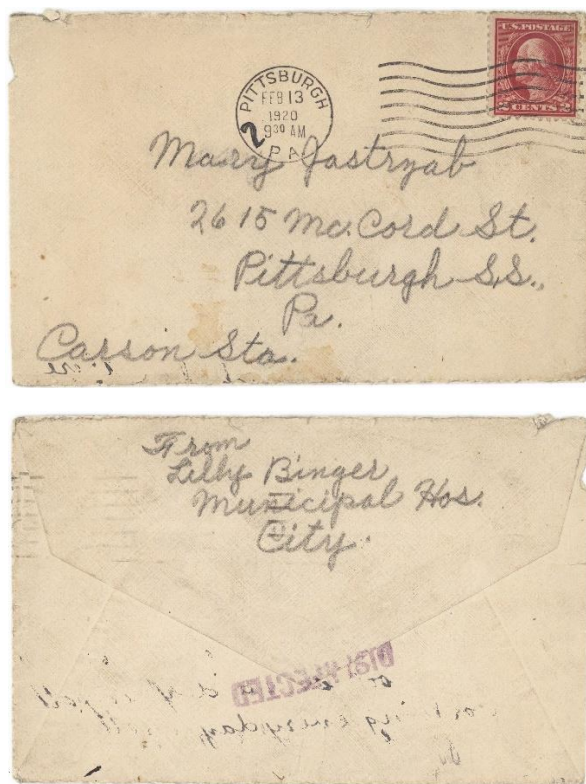 U.S. POSTAGE
2 CENTS 2
PITTSBURGH
FEB 13
1920
9 30 AM
PA
2
Mary Jastrzab
2615 Mc. Cord St.
Pittsburgh S.S.,
Pa.
Carson Sta.
From
Lilly Binger
Municipal Hos.
City.
DISINFECTED
everyday